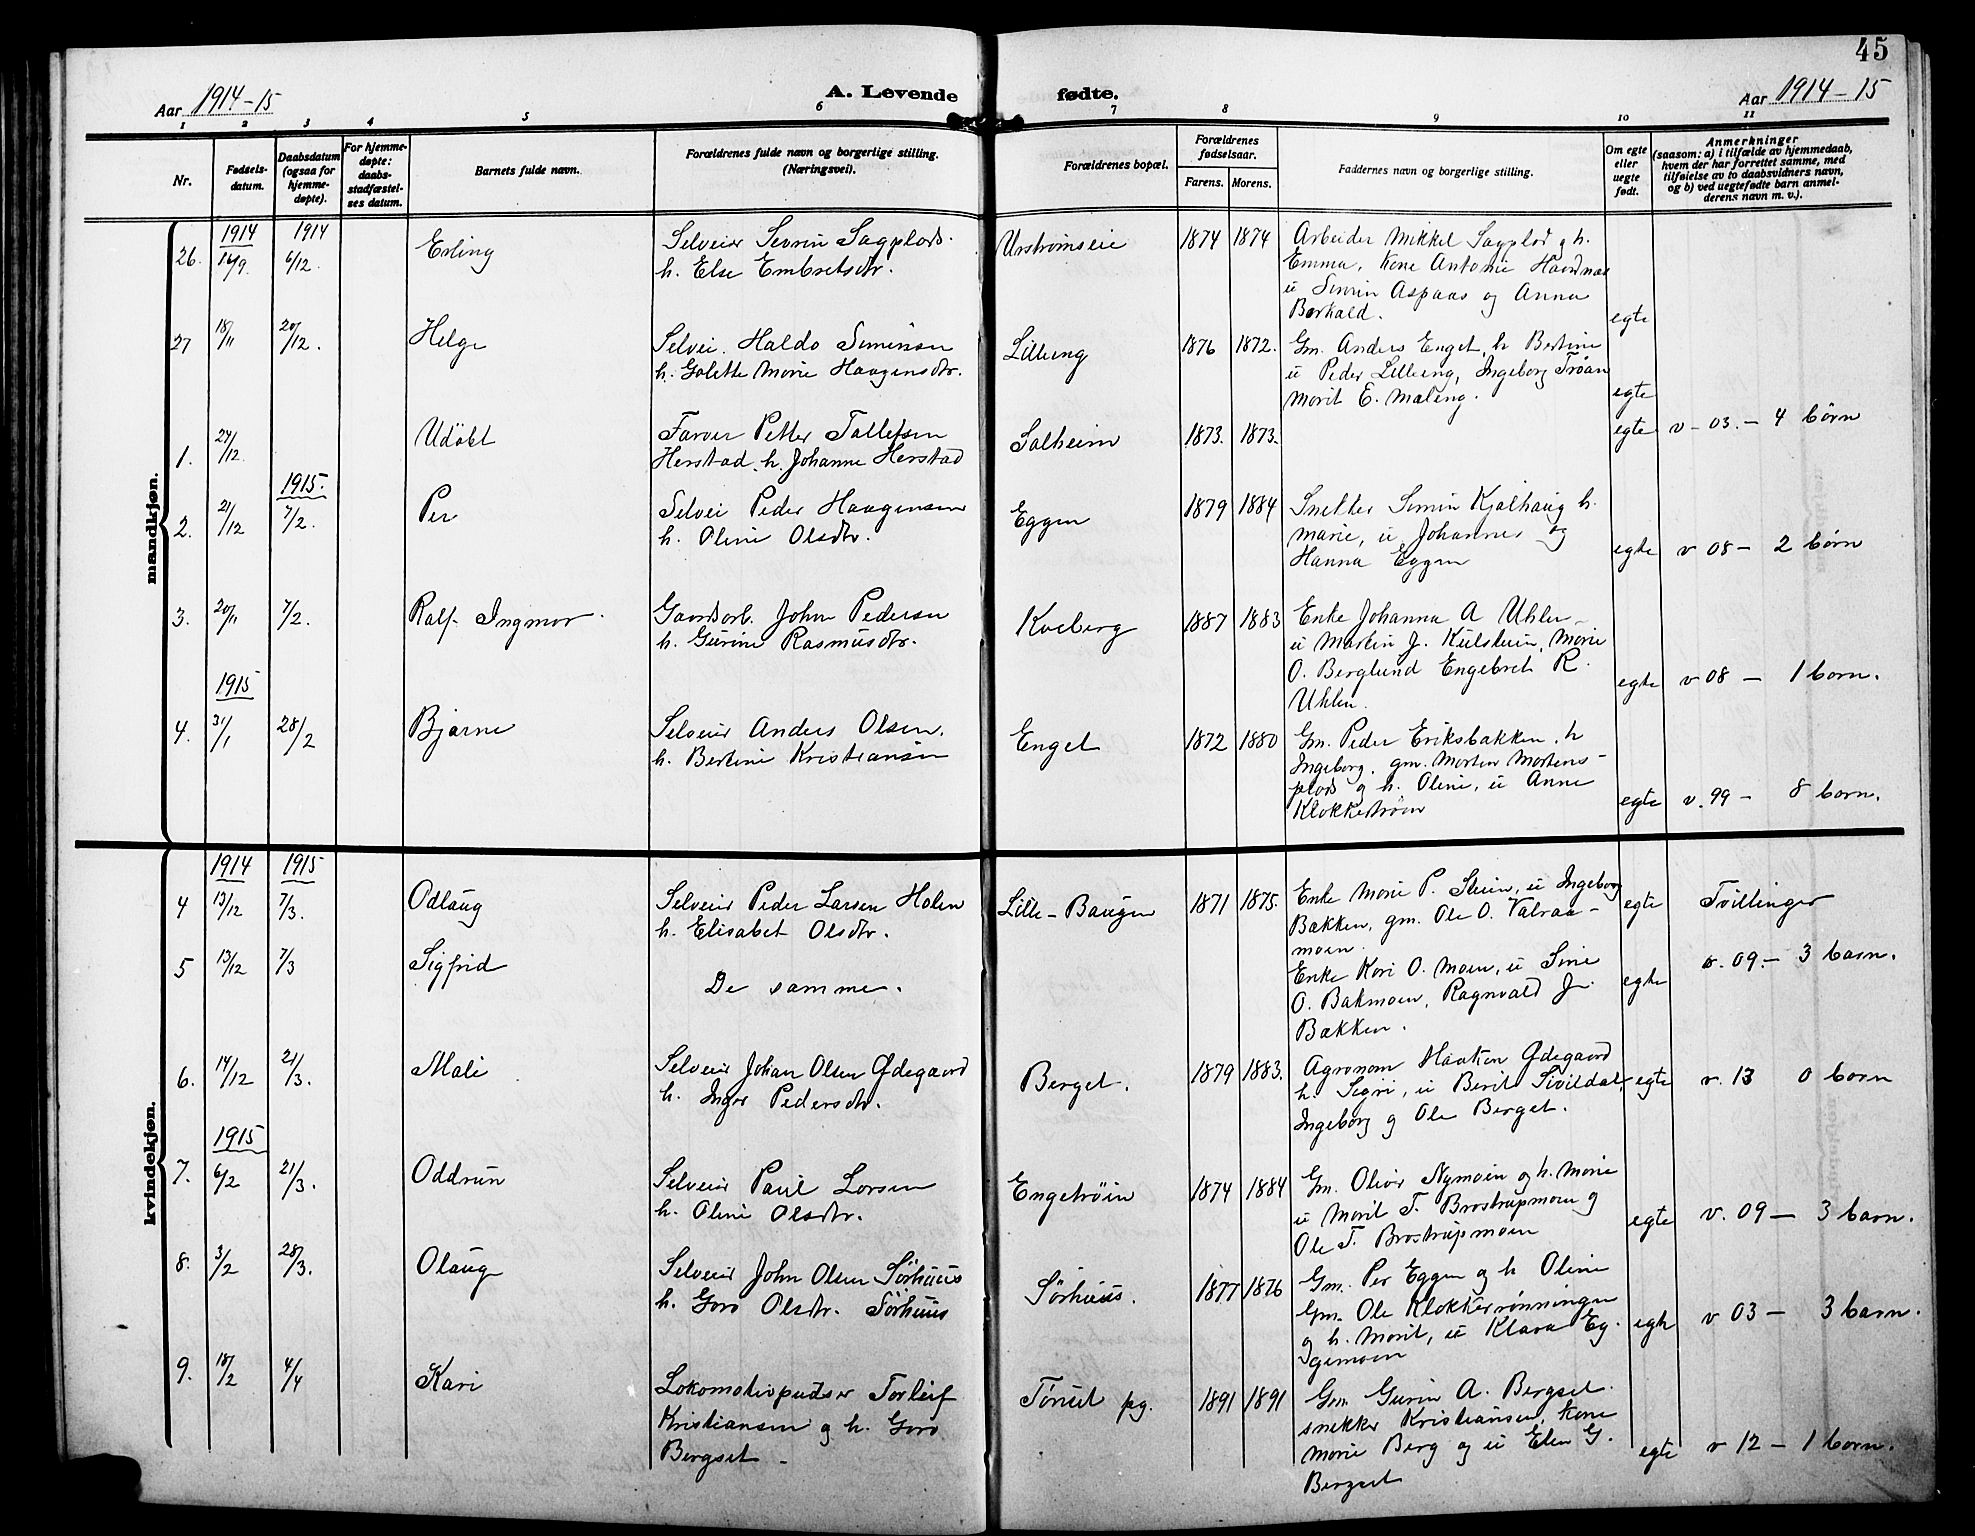 45
Aar 1914-15
A. Levende fødte.
Aar 1914-15
1 2 3 4 5 6 7 8 9 10 11
Nr.
Fødsels-
datum.
Daabsdatum
(ogsaa for
hjemme-
døpte).
For hjemme-
døpte:
daabs-
stadfæstel-
ses datum.
Barnets fulde navn.
Forældrenes fulde navn og borgerlige stilling.
(Næringsvei).
Forældrenes bopæl.
Forældrenes
fødselsaar.
Farens. Morens.
Faddernes navn og borgerlige stilling.
Om egte
eller
uegte
født.
Anmerkninger
(saasom: a) i tilfælde av hjemmedaab,
hvem der har forrettet samme, med
tilføielse av to daabsvidners navn,
og b) ved uegtefødte barn anmel-
derens navn m. v.).
mandkjøn.
1914 1914
26. 16/9. 6/12. Erling
Selveier Sevrin Sagplads.
h. Else Embretsdtr.
1874 1874
Arbeider Mikkel Sagplad g h.
Emma, Kone Antonie
u Simin Aspaas og Anna
egte
27 18/11 20/12. Helge
Selvei. Haldo Simensen
h. Golette Marie Haagensdtr.
Lilleeng
1876 1872.
Gm. Anders Enget, h Bertine
u Peder Lilleeng, Ingeborg Trøan
Marit E. Maleng.
egte
1. 24/12 Udøbt
Farver Petter Tollefsen
Herstad h. Johanne Herstad
Solheim
1873. 1873.
egte v - 03. - 4 børn
1915.
2. 21/12 7/2. Per
Selvei Peder Haagensen
h. Oline Olsdtr.
Eggen
1879 1884
Snekker Simin Kjølhaug h.
Marie, u Johannes og
Hanna Eggen
egte v 08 - 2 børn
3. 20/11 7/2. Ralf Ingmar
Gaardarb. John Pedersen
h. Gurine Rasmusdtr.
Kveberg
1887 1883
Enke Johanna A Uhlen
u Martin J. Kulstuen, Marie
O. Berglund Engebret R.
Uhlen.
egte v 08 - 1 barn.
1915
4. 31/1 28/2 Bjarne
Selveier Anders Olsen.
h. Bertine Kristiansen
Enget
1872 1880
Gm. Peder Eriksbakken, h
Ingeborg, gm. Morten Mortens-
plads og h. Oline, u Anne
Klokketrøen
egte v. 99 - 8 barn.
kvindekjøn.
1914 1915
4 13/12 7/3. Odlaug
Selveier Peder Larsen Holen
h. Elisabet Olsdtr.
Lille-Baugen
1871 1875.
Enke Marie P. Steien, u Ingeborg
Bakken, gm. Ole O. Valraa-
moen.
egte Tvillinger
5 13/12 7/3 Sigfrid
De samme.
Enke Kari O. Moen, u Sine
O. Bakmoen, Ragnvald J.
Bakken.
egte v. 09. - 3 barn.
6. 14/12 21/3. Mali
Selveier Johan Olsen Ødegaard
h. Inger Pedersdtr.
Berget.
1879 1883.
Agronom Haaken Ødegaard
h. Sigri, u Berit Sivildal,
Ingeborg g Ole Berget.
egte v. 13 0 barn
1915
7. 6/2 21/3. Oddrun
Selveier Paul Larsen
h. Oline Olsdtr.
Engetrøen
1874 1884
Gm. Oliver Nymoen og h. Marie
u Marit T. Brostrupmoen g
Ole T. Brostrupmoen
egte v. 09 - 3 barn.
8. 3/2 28/3. Olaug
Selveier John Olsen Sørhuus
h. Goro Olsdtr. Sørhuus
Sørhuus.
1877 1876
Gm. Per Eggen og h Oline
Gm. Ole Klokkerønningen
g h. Marit, u Klara Eg-
gemoen
egte v 03 - 3 barn.
9. 18/2 4/4 Kari
Lokomotivpudser Torleif
Kristiansen g h. Goro
Bergset -
Tønset pg.
1891 1891
Gm. Gurin A. Bergset.
snekker Kristiansen, kone
Marie Berg og u Elen G.
Bergset
egte v 12 - 1 barn.